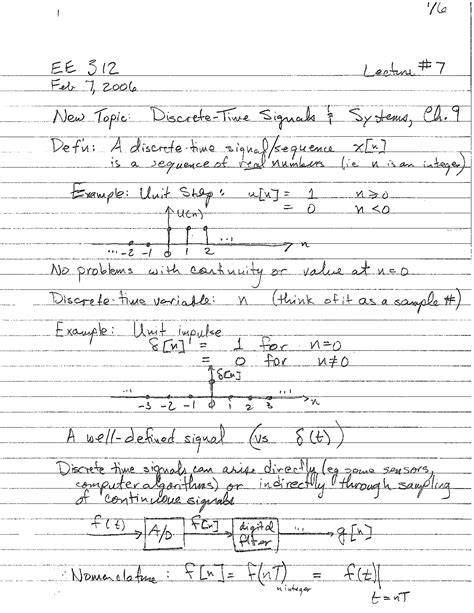 1/6
1
EE 312 Lecture #7
Feb 7, 2006
New Topic: Discrete-Time Signals & Systems, Ch. 9
Defn: A discrete-time signal/sequence x[n]
is a sequence of real numbers (ie n is an integer)
Example: Unit Step: u[n] = 1 n≥0
= 0 n<0
u(n)
... -2 -1 0 1 2 ... n
No problems with continuity or value at n=0
Discrete-time variable: n (think of it as a sample #)
Example: Unit impulse
δ[n] = 1 for n=0
= 0 for n≠0
δ[n]
... -3 -2 -1 0 1 2 3 ... n
A well-defined signal (vs δ(t))
Discrete time signals can arise directly (eg some sensors,
computer algorithms) or indirectly through sampling
of continuous signals
f(t) A/D f[n] digital filter ... g[n]
Nomenclature: f[n] = f(nT) = f(t)|
n integer t=nT